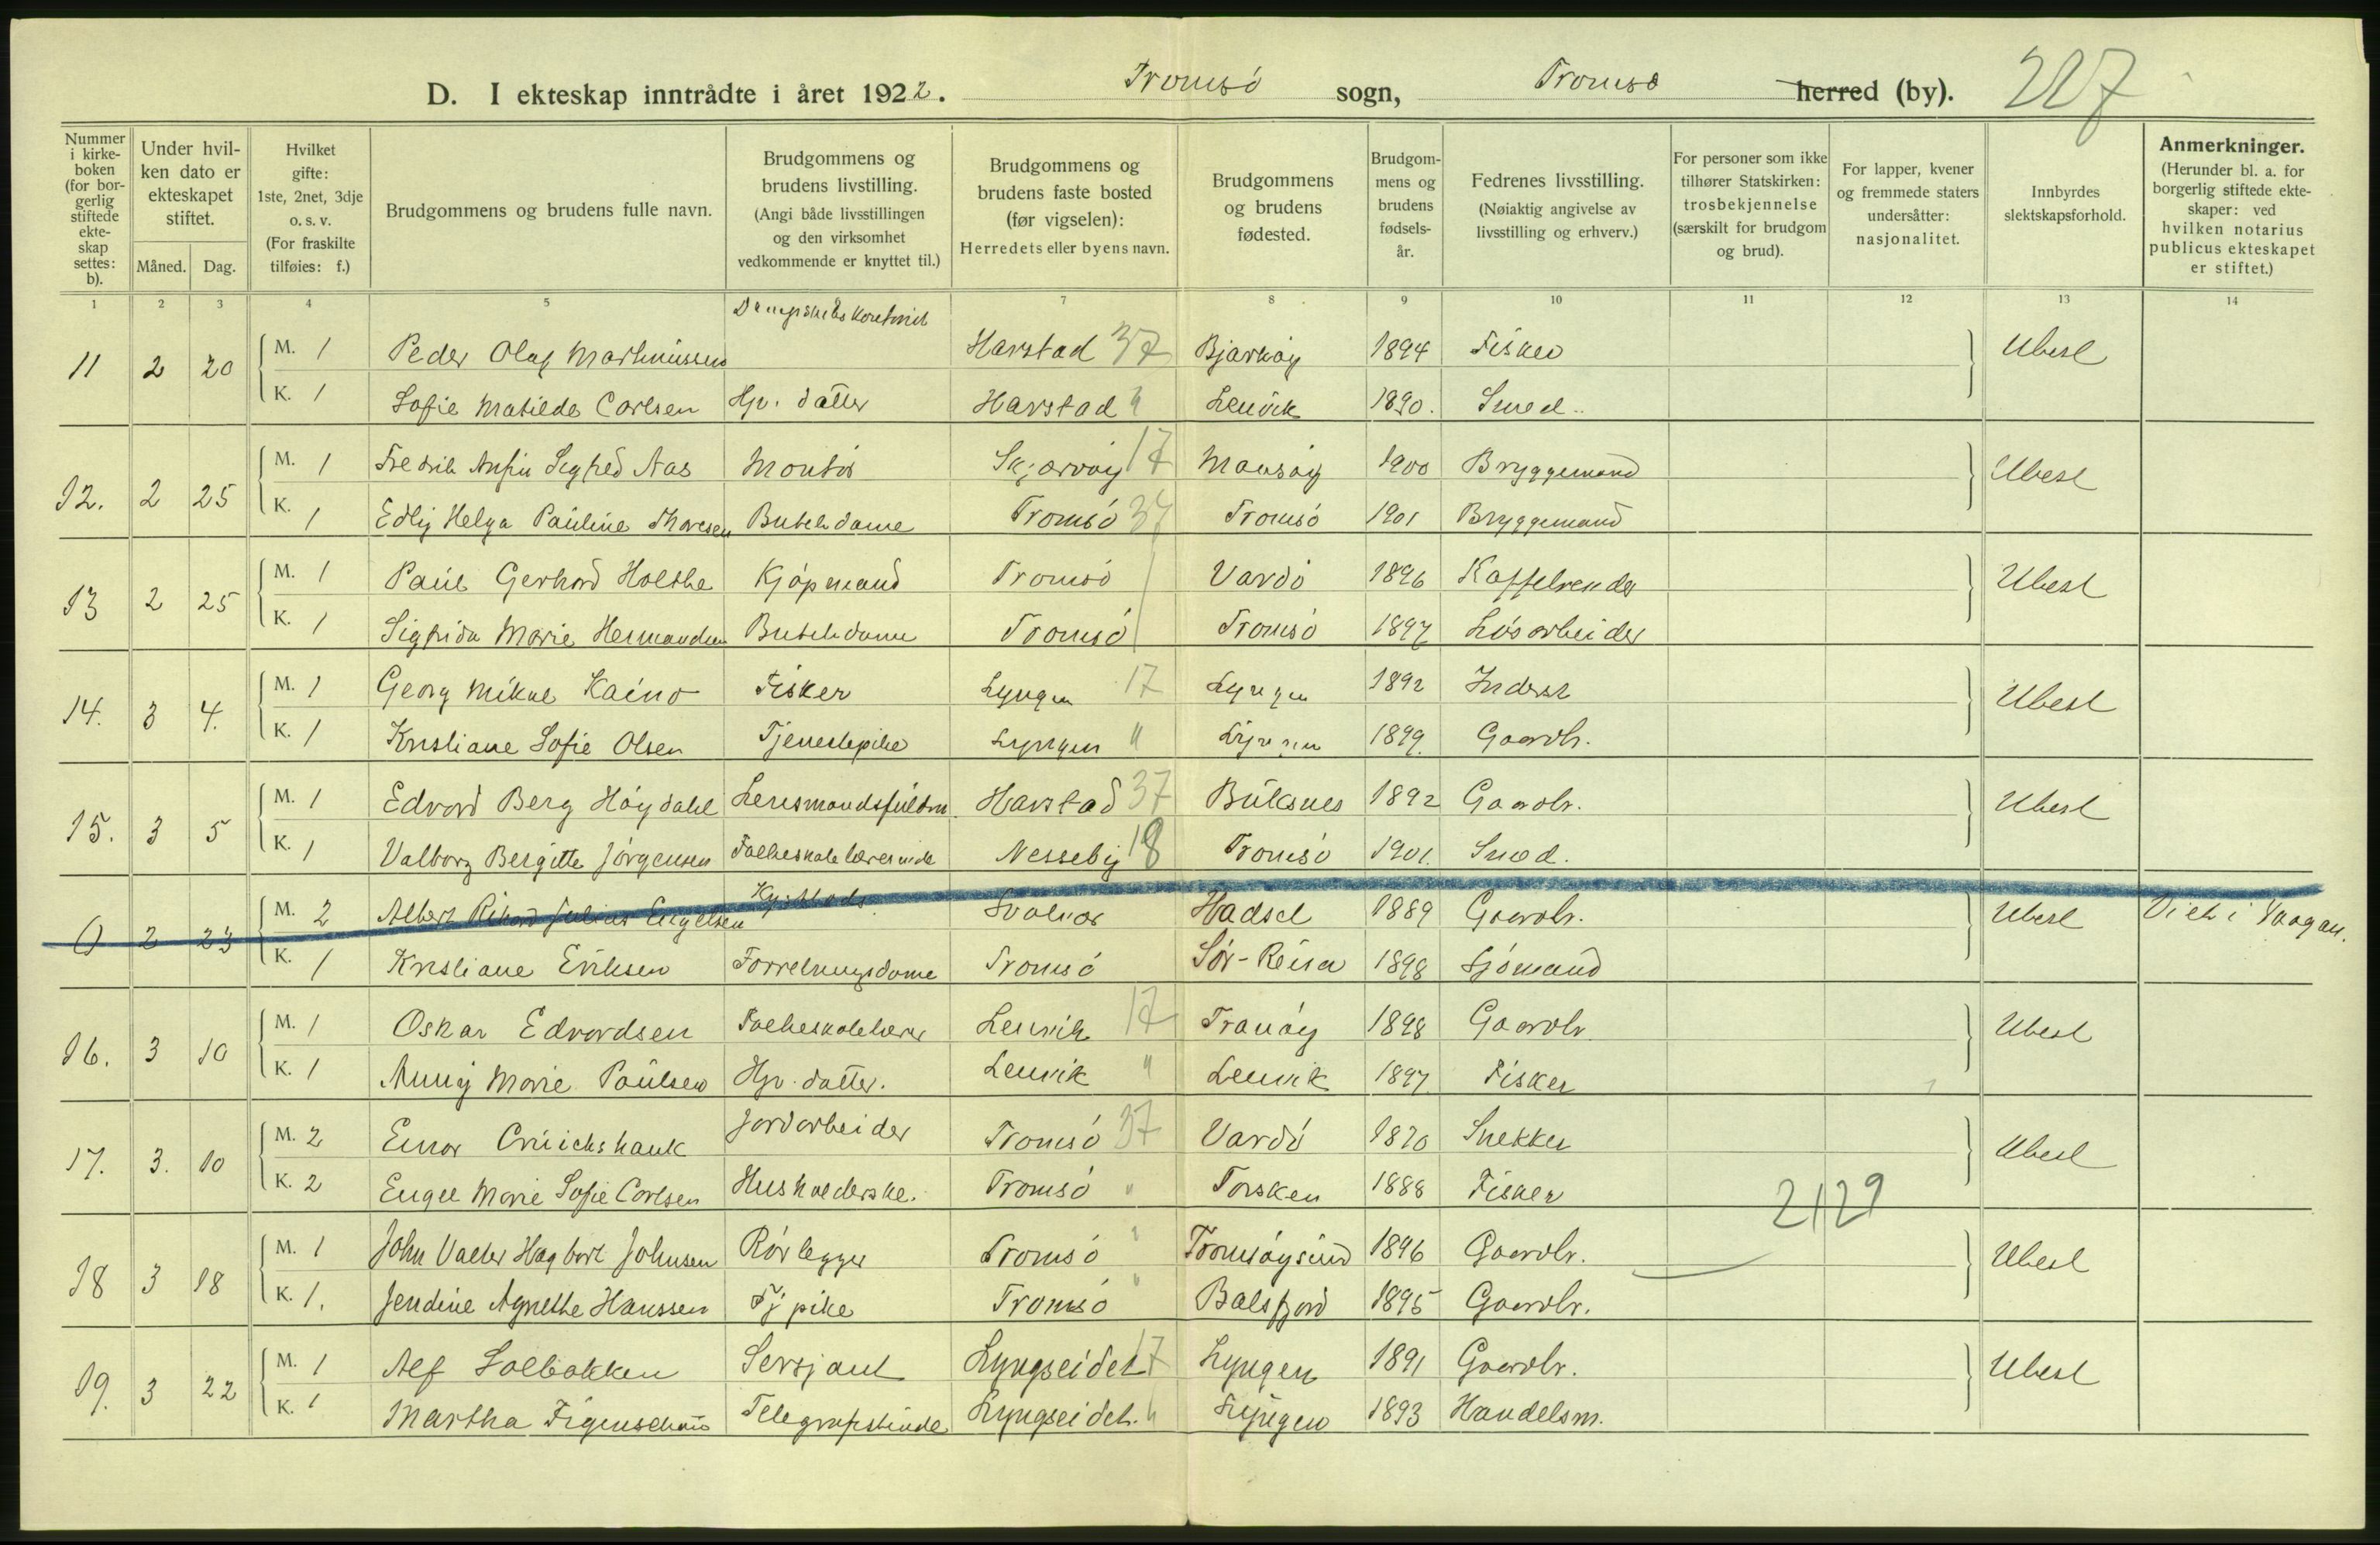 D. I ekteskap inntrådte i året 1922. Tromsö sogn, Tromsö herred (by). 227
Nummer i kirkeboken (for borgerlig stiftede ekteskap settes: b).
Under hvilken dato er ekteskapet stiftet.
Måned. Dag.
Hvilket gifte: 1ste, 2net, 3dje o. s. v. (For fraskilte tilføies: f.)
Brudgommens og brudens fulle navn.
Brudgommens og brudens livstilling. (Angi både livsstillingen og den virksomhet vedkommende er knyttet til.)
Brudgommens og brudens faste bosted (før vigselen): Herredets eller byens navn.
Brudgommens og brudens fødested.
Brudgommens og brudens fødselsår.
Fedrenes livsstilling. (Nøiaktig angivelse av livsstilling og erhverv.)
For personer som ikke tilhører Statskirken: trosbekjennelse (særskilt for brudgom og brud).
For lapper, kvener og fremmede staters undersåtter: nasjonalitet.
Innbyrdes slektskapsforhold.
Anmerkninger. (Herunder bl. a. for borgerlig stiftede ekteskaper: ved hvilken notarius publicus ekteskapet er stiftet.)
1 2 3 4 5 7 8 9 10 11 12 13 14
11 2 20 M. 1 Peder Olaf Marthinussen Harstad 37 Bjarköy 1894 Fisker Ubesl
K. 1 Sofie Matilde Carlsen Hjv. datter Harstad " Lenvik 1890. Smed.
12. 2 25 M. 1 Fredrik Anfin Sigfred Aas Montör Skjærvöy 17 Maasöy 1900 Bryggemand Ubesl
K. 1 Edly Helga Pauline Thoresen Butikdame Tromsö 37 Tromsö 1901 Bryggemand
13 2 25 M. 1 Paul Gerhard Holthe Kjöpmand Tromsö Vardö 1896 Ubesl
K. 1 Sigfrida Marie Hermandsen Butikdame Tromsö Tromsö 1897 Lösarbeider
14. 3 4. M. 1 Georg Mikal Kaino Fisker Lyngen 17 Lyngen 1892 Inderst Ubesl
K. 1 Kristiane Sofie Olsen Tjenestepike Lyngen " Lyngen 1899. Gaardbr.
15. 3 5 M. 1 Edvard Berg Höydahl Lensmandsfuldm. Harstad 37 Buksnes 1892 Gaardbr. Ubesl
K. 1 Valborg Bergitte Jörgensen Folkeskolelærerinde Nesseby 18 Tromsö 1901. Smed.
0 2 23 M. 2 Albert Rikard Julius Engelsen Svolvær Hadsel 1889 Gaardbr. Ubesl Viet i Vaagan.
K. 1 Kristiane Eriksen Forretningsdame Tromsö Sör-Reisa 1898 Sjömand
16. 3 10 M. 1 Oskar Edvardsen Folkeskolelærer Lenvik 17 Tranöy 1898 Gaardbr. Ubesl
K. 1 Anny Marie Paulsen Hjv. datter. Lenvik " Lenvik 1897 Fisker
17. 3. 10 M. 2 Einar Cruickshank Jordarbeider Tromsö 37 Vardö 1870 Snekker Ubesl
K. 2 Engel Marie Sofie Carlsen Husholderske. Tromsö " Torsken 1888 Fisker
2129
18 3 18 M. 1 John Valter Hagbart Johnsen Rörlegger Tromsö " Tromsöysund 1896 Gaardbr. Ubesl
K. 1. Jendine Agnethe Hanssen Tj pike Tromsö " Balsfjord 1895 Gaardbr.
19. 3 22 M. 1 Alf Solbakken Sersjant Lyngseidet 17 Lyngen 1891 Gaardbr. Ubesl
K. 1 Martha Figenschau Telegrafistinde Lyngseidet. " Lyngen 1893 Handelsm.